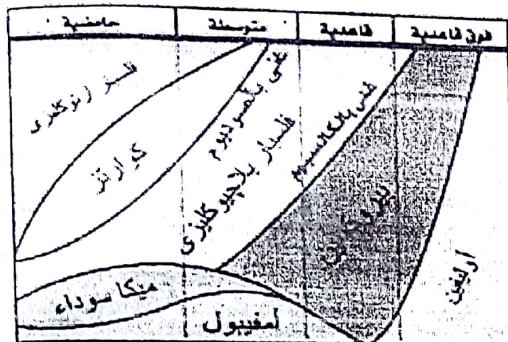 فوق قاعدية
قاعدية
متوسطة
حامضية
فلسبار أرثوكليزي
كوارتز
غني بالصوديوم
فلسبار بلاجيوكليزي
غني بالكالسيوم
بيروكسين
أوليفين
ميكا سوداء
أمفيبول